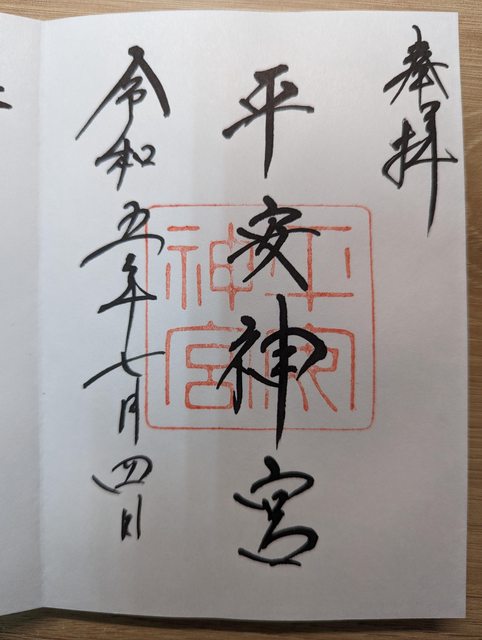 奉拝
平安神宮
平安神宮
令和五年七月四日